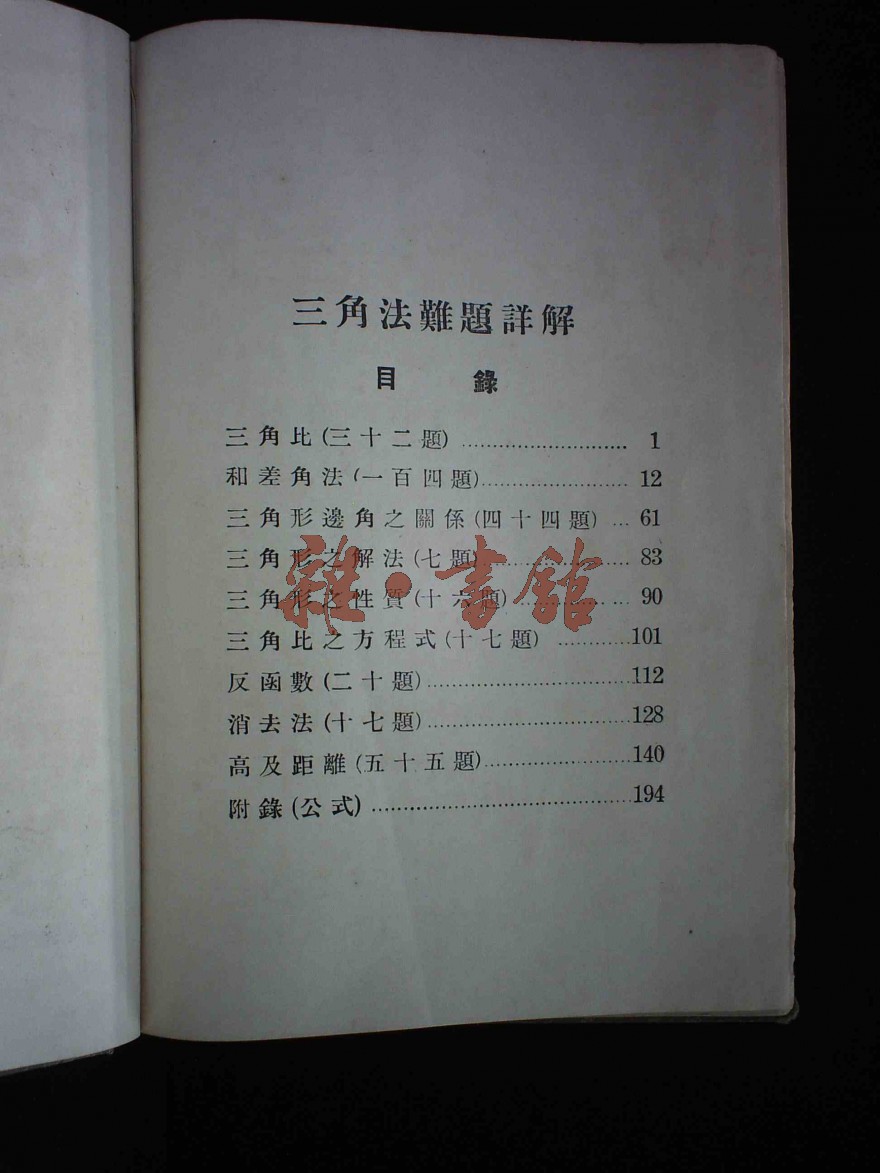 三角法難題詳解
目錄
三角比(三十二題) ........................... 1
和差角法(一百四題)........................ 12
三角形邊角之關係(四十四題) ... 61
三角形之解法(七題)........................ 83
三角形之性質(十六題).................. 90
三角比之方程式(十七題) ............101
反函數(二十題)..................................112
消去法(十七題)..................................128
高及距離(五十五題)........................140
附錄(公式) ..........................................194
雜·書館